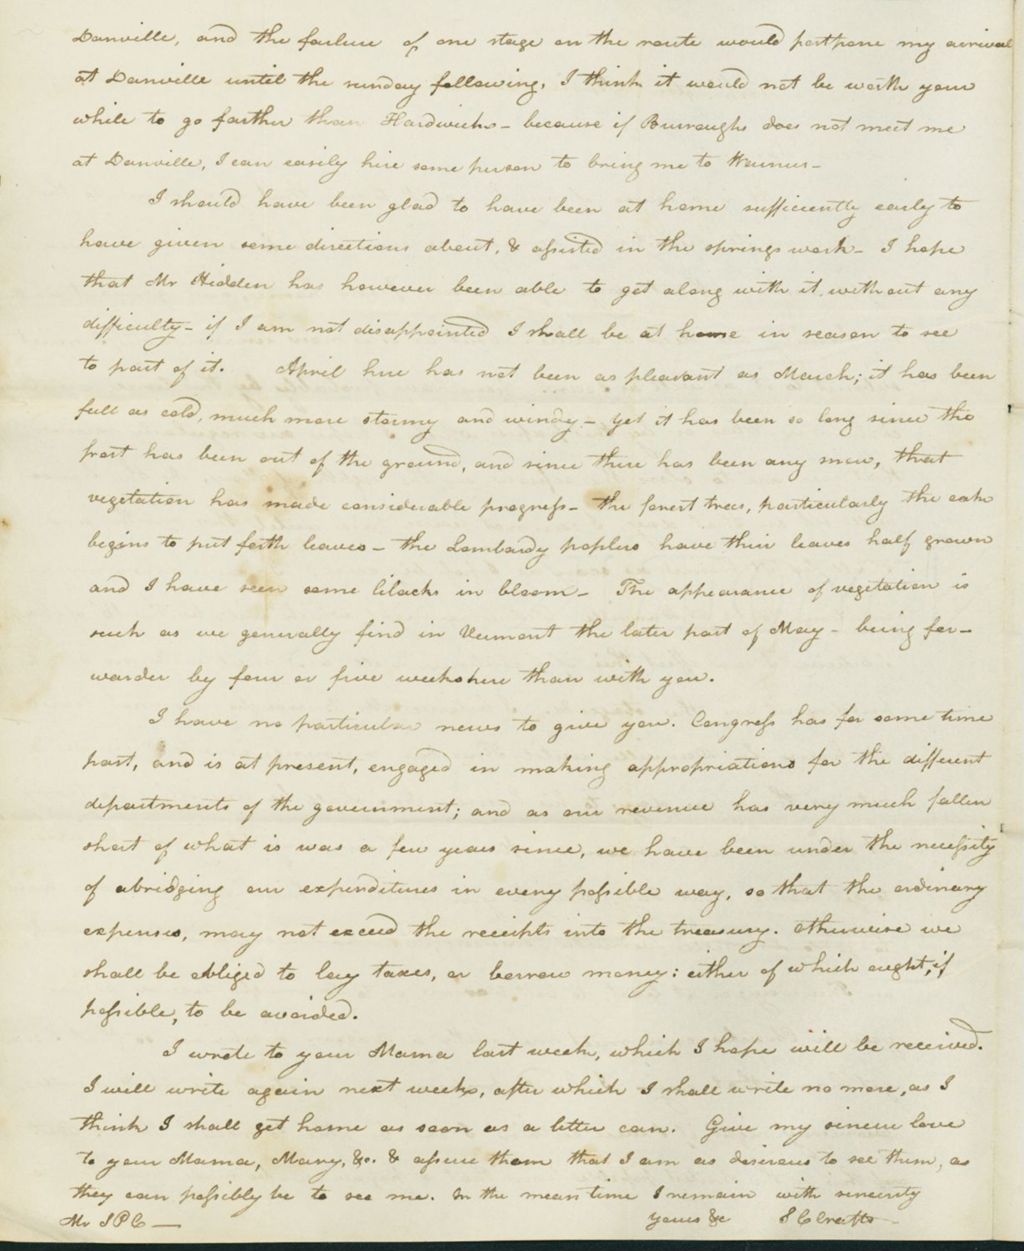 Danville, and the failure of one stage on the route would postpone my arrival
at Danville until the sunday following, I think it would not be worth your
while to go farther than Hardwick - because if Burroughs does not meet me
at Danville, I can easily hire some person to bring me to
I should have been glad to have been at home sufficiently early to
have given some directions about, & assisted in the springs work - I hope
that Mr Hidden has however been able to get along with it without any
difficulty - if I am not disappointed I shall be at home in season to see
to part of it. April here has not been as pleasant as March; it has been
full as cold, much more stormy and windy - yet it has been so long since the
frost has been out of the ground, and since there has been any snow, that
vegetation has made considerable progress - the forest trees, particularly the oake
begins to put forth leaves - the Lombardy poplars have their leaves half grown
and I have seen some lilacks in bloom - The appearance of vegetation is
such as we generally find in Vermont the later part of May - being for-
warder by four or five weeks here than with you.
I have no particular news to give you. Congress has for some time
past, and is at present, engaged in making appropriations for the different
departments of the government; and as our revenue has very much fallen
short of what is was a few years since, we have been under the necessity
of abridging our expenditures in every possible way, so that the ordinary
expenses, may not exceed the receipts into the treasury. Otherwise we
shall be obliged to lay taxes, or borrow money: either of which ought, if
possible, to be avoided.
I wrote to your Mama last week, which I hope will be received.
I will write again next week, after which I shall write no more, as I
think I shall get home as soon as a letter can. Give my sincere love
to your Mama, Mary, &c. & assure them that I am as desirous to see them, as
they can possibly be to see me. In the mean time I remain with sincerity
Mr S P C — yours &c S C Crafts -